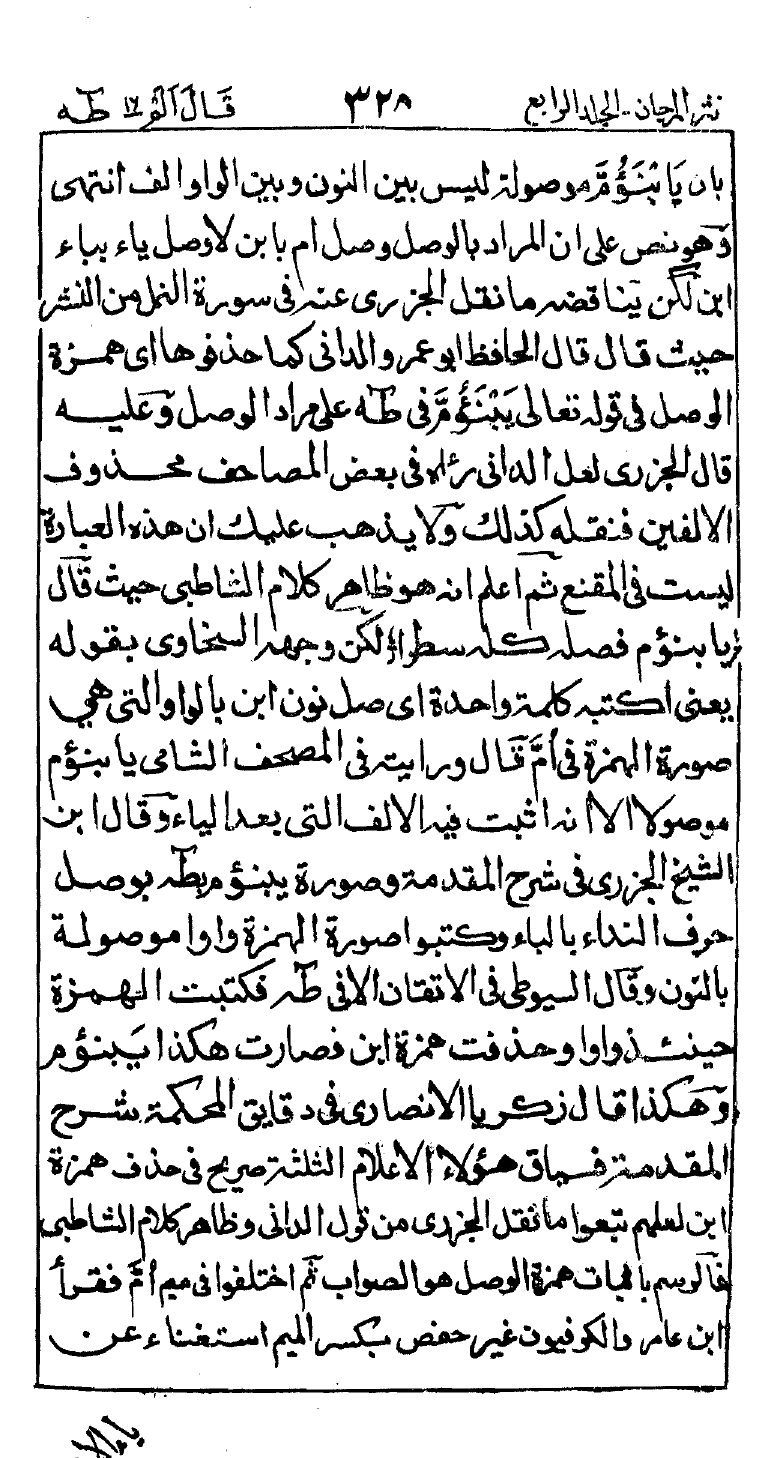 نثر المرجان - الجلد الرابع ٣٢٨ قَالَ اَلَمْ ١٦ طٰهٰ
بان يَا بْنَؤُمَّ موصولة ليس بين النون وبين الواو الف انتهى
وَهو نص على ان المراد بالوصل وصل ام بابن لا وصل ياء بباء
ابن لٰكن يناقضه ما نقل الجزرى عنه فى سورة النمل من النشر
حيث قال قال الحافظ ابو عمرو الدانى كما حذفوها اى همزة
الوصل فى قوله تعالى يَبْنَؤُمَّ فى طٰهٰ على مراد الوصل وَعليه
قال الجزرى لعل الدانى رئاه فى بعض المصاحف محذوف
الالفين فنقله كذلك وَلا يذهب عليك ان هذه العبارة
ليست فى المقنع ثم اعلم انه هو ظاهر كلام الشاطبى حيث قَال
يا بنؤم فصله كله سطرا لٰكن وجهه السخاوى بقوله
يعنى اكتبه كلمة واحدة اى صل نون ابن بالواو التى هي
صورة الهمزة فى أمَّ قَال ورايته فى المصحف الشامى يا بنؤم
موصولا الا انه اثبت فيه الالف التى بعد الياء وَقال ابن
الشيخ الجزرى فى شرح المقدمة وصورة يبنؤم بطٰهٰ بوصل
حرف النداء بالباء وكتبوا صورة الهمزة واوا موصولة
بالنون وقَال السيوطى فى الاتقان الا فى طٰهٰ فكتبت الهمزة
حينئذ واوا وحذفت همزة ابن فصارت هكذا يَبنؤم
وَهكذا قال زكريا الانصارى فى دقايق المحكمة شرح
المقدمة فسياق هؤلاء الاعلام الثلثة صريح فى حذف همزة
ابن لعلهم تبعوا ما نقل الجزرى من قول الدانى وظاهر كلام الشاطبى
فالرسم باثبات همزة الوصل هو الصواب ثم اختلفوا فى ميم أمَّ فقرأ
ابن عامر والكوفيون غير حفص بكسر الميم استغناء عن